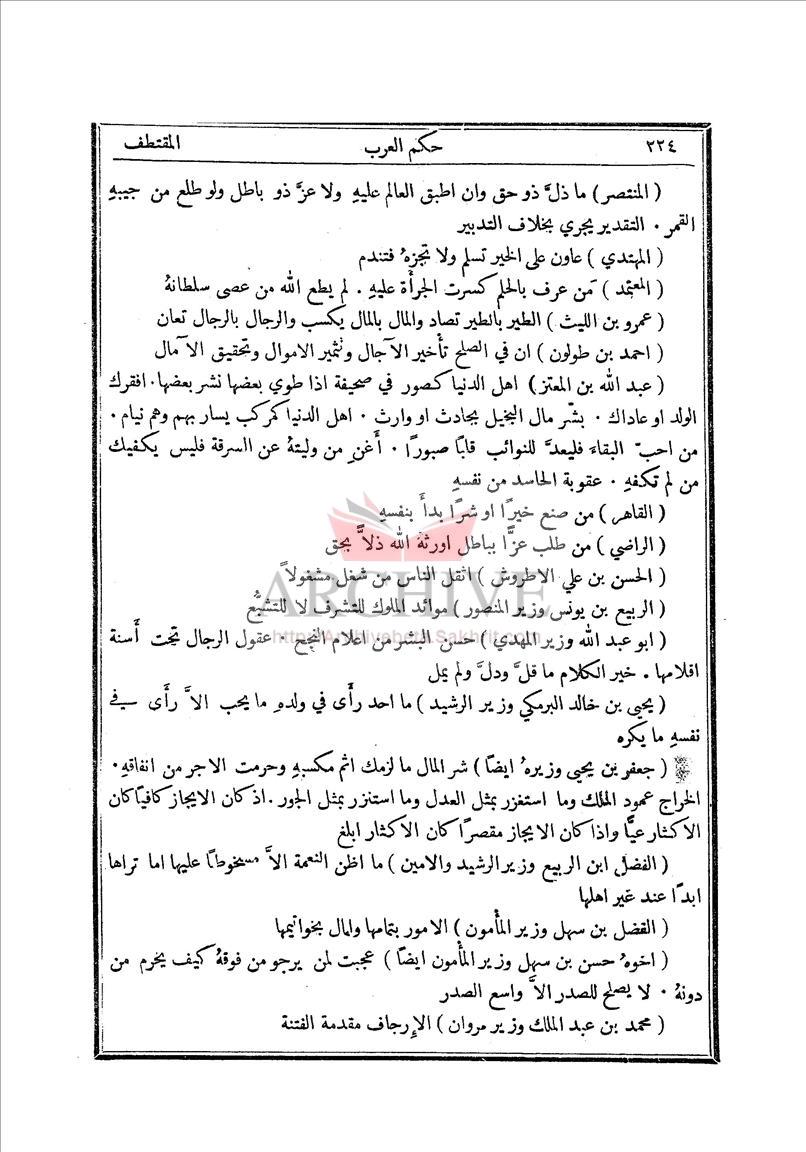 ٢٢٤ حكم العرب المقتطف
( المنتصر ) ما ذلَّ ذو حق وان اطبق العالم عليهِ ولا عزَّ ذو باطل ولو طلع من جيبهِ
القمر . التقدير يجري بخلاف التدبير
( المهتدي ) عاون على الخير تسلم ولا تجزهُ فتندم
( المعتمد ) مَن عرف بالحلم كسرت الجرأة عليهِ . لم يطع الله من عصى سلطانهُ
( عمرو بن الليث ) الطير بالطير تصاد والمال بالمال يكسب والرجال بالرجال تعان
( احمد بن طولون ) ان في الصلح تأخير الآجال وتثمير الاموال وتحقيق الآمال
( عبد الله بن المعتز ) اهل الدنيا كصور في صحيفة اذا طوي بعضها نشر بعضها . افقرك
الولد او عاداك . بشّر مال البخيل بحادث او وارث . اهل الدنيا كمركب يسار بهم وهم نيام .
من احبّ البقاء فليعدَّ للنوائب قلبًا صبورًا . أَغنِ من وليتهُ عن السرقة فليس يكفيك
من لم تكفهِ . عقوبة الحاسد من نفسهِ
( القاهر ) من صنع خيرًا او شرًا بدأَ بنفسهِ
( الراضي ) من طلب عزًّا بباطل اورثهُ الله ذلاًّ بحق
ARCHIVE
( الحسن بن علي الاطروش ) اثقل الناس من شغل مشغولاً
( الربيع بن يونس وزير المنصور ) موائد الملوك للتشرف لا للتشبُّع
http://Archivebeta.Sakhrit.com
( ابو عبد الله وزير المهدي ) حسن البشر من اعلام النجح . عقول الرجال تحت أَسنة
اقلامها . خير الكلام ما قلَّ ودلَّ ولم يمل
( يحيى بن خالد البرمكي وزير الرشيد ) ما احد رأَى في ولدهِ ما يحب الاَّ رأَى في
نفسهِ ما يكره
( جعفر بن يحيى وزيرهُ ايضًا ) شر المال ما لزمك اثم مكسبهِ وحرمت الاجر من انفاقهِ .
الخراج عمود الملك وما استغزر بمثل العدل وما استنزر بمثل الجور . اذ كان الايجاز كافيًا كان
الاكثار عيًّا واذا كان الايجاز مقصرًا كان الاكثار ابلغ
( الفضل ابن الربيع وزير الرشيد والامين ) ما اظن النعمة الاَّ مسخوطًا عليها اما تراها
ابدًا عند غير اهلها
( الفضل بن سهل وزير المأمون ) الامور بتمامها والمال بخواتيمها
( اخوهُ حسن بن سهل وزير المأمون ايضًا ) عجبت لمن يرجو من فوقهُ كيف يحرم من
دونهُ . لا يصلح للصدر الاَّ واسع الصدر
( محمد بن عبد الملك وزير مروان ) الإرجاف مقدمة الفتنة